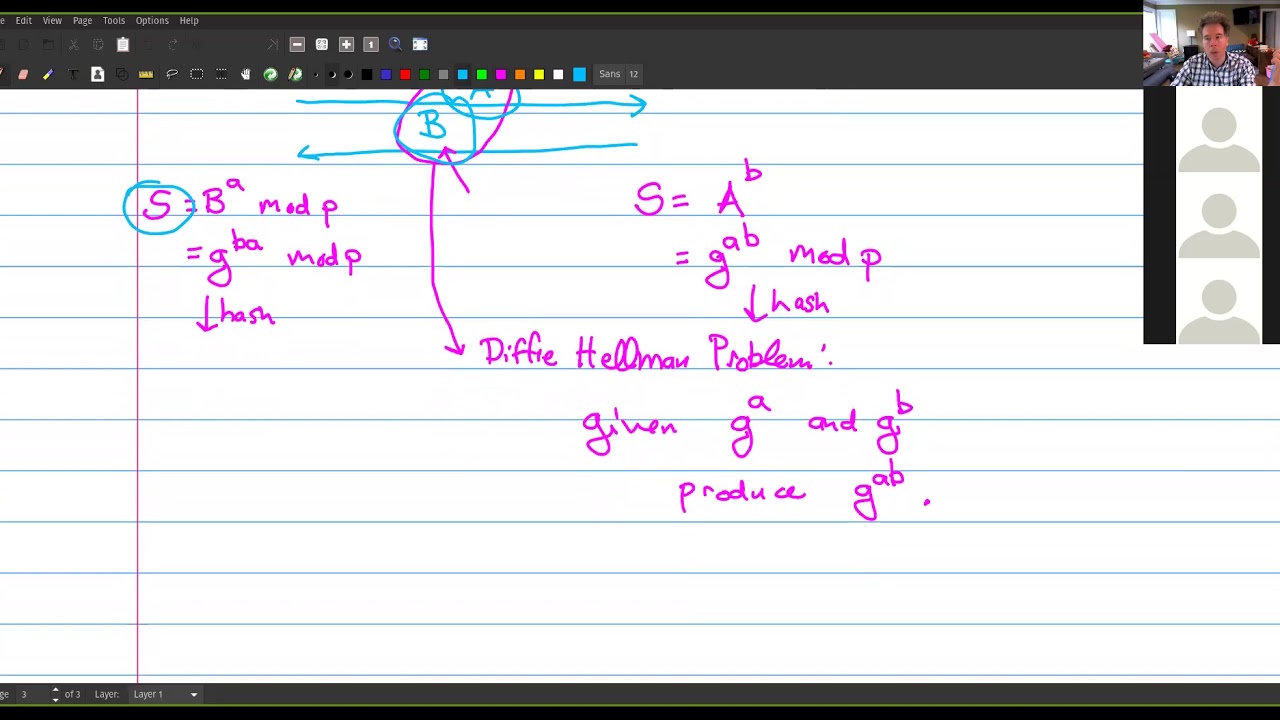 Edit View Page Tools Options Help
Sans 12
A
B
S = B^a mod p
= g^ba mod p
↓ hash
S = A^b
= g^ab mod p
↓ hash
Diffie Hellman Problem:
given g^a and g^b
produce g^ab .
ge 3 of 3 Layer: Layer 1